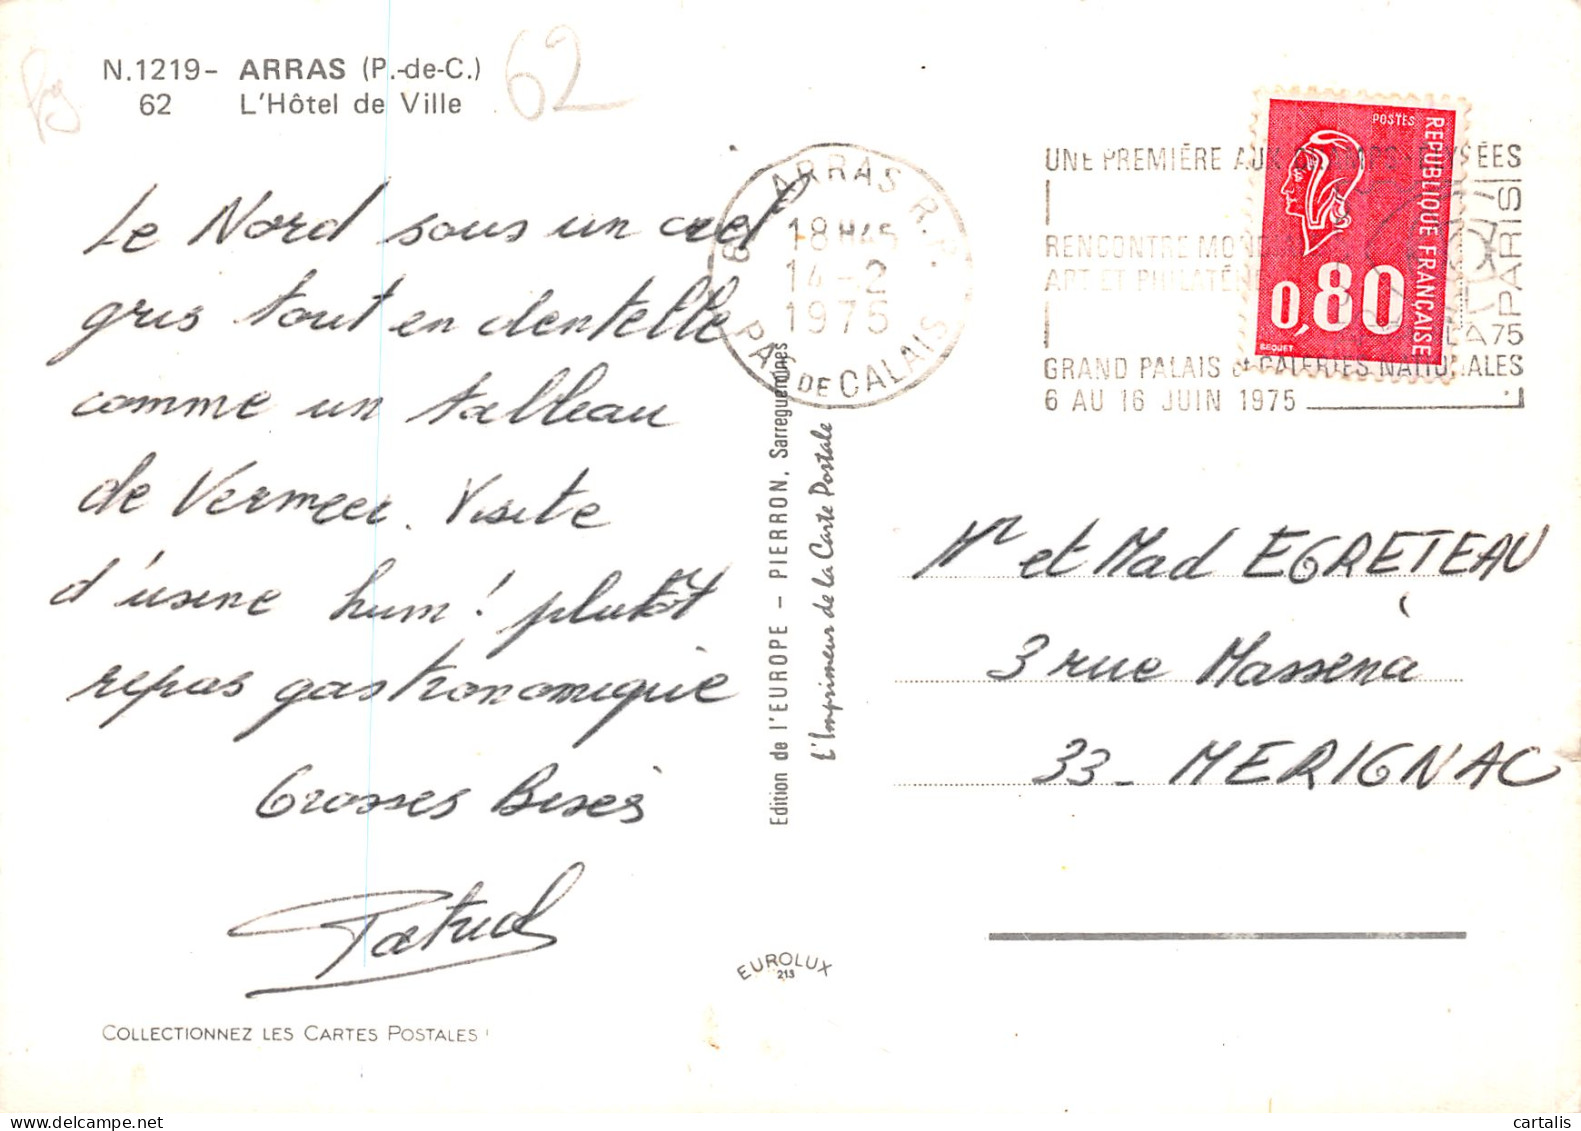 N.1219- ARRAS (P.-de-C.)
62 L'Hôtel de Ville
62
Le Nord sous un ciel
gris tout en dentelle
comme un tableau
de Vermeer. Visite
d'usine hum! plutôt
repas gastronomique
Grosses Bises
Patrick
COLLECTIONNEZ LES CARTES POSTALES !
ARRAS R.P.
18H45
14-2
1975
PAS DE CALAIS
Edition de l'EUROPE - PIERRON, Sarreguemines
L'Imprimeur de la Carte Postale
EUROLUX
213
UNE PREMIÈRE AUX
RENCONTRE
ART ET
GRAND PALAIS & GALERIES NATIONALES
6 AU 16 JUIN 1975
POSTES
REPUBLIQUE FRANÇAISE
0,80
BEQUET
Mr et Mad EGRETEAU
3 rue Massena
33_ MERIGNAC
cartalis